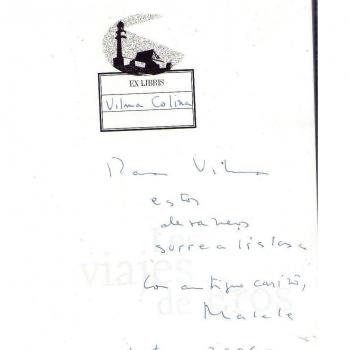 EX LIBRIS
Vilma Colina
Para Vilma
estos
devaneos
surrealistas
Los
viajes
de Eros
Con antiguo cariño,